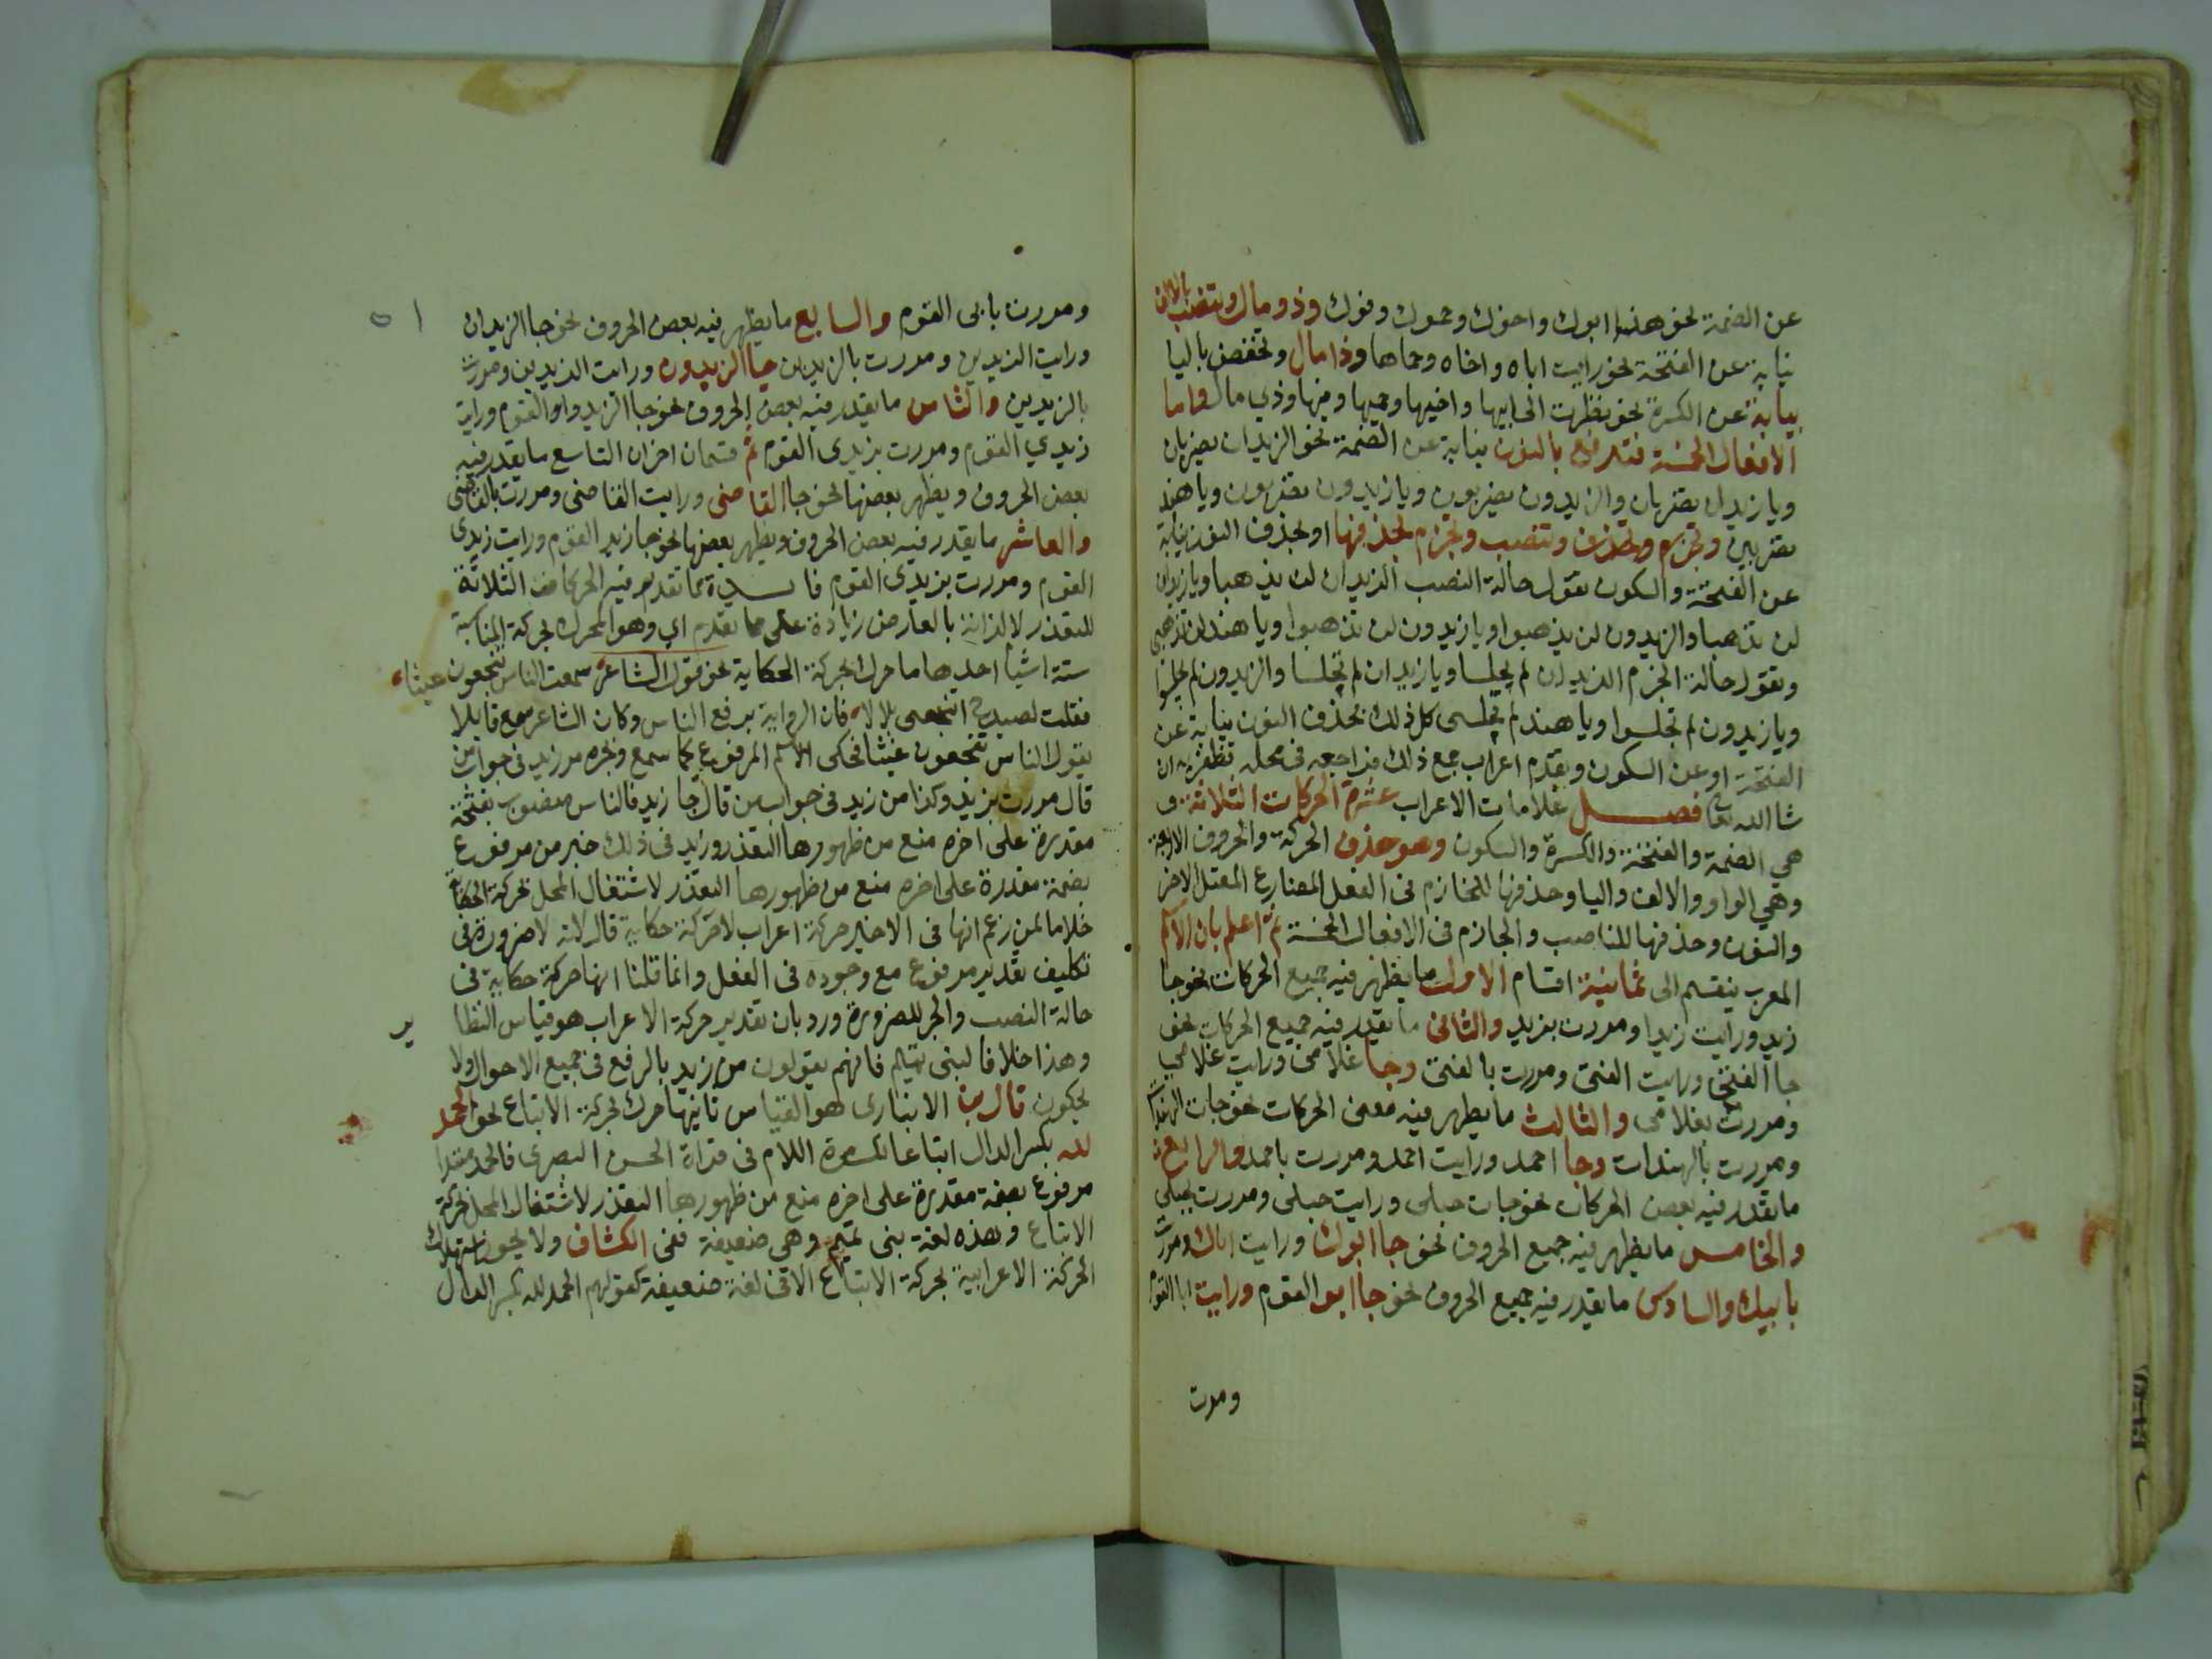 عن الضمة نحو هذا ابوك واخوك وحموك وفوك وذو مال وتنصب بالالف
نيابة عن الفتحة نحو رايت اباه واخاه وحماها وذا مال وتخفض باليا
نيابة عن الكسرة نحو نظرت الى ابيها واخيها وحميها وفيها وذي مال واما
الافعال الخمسة فترفع بالنون نيابة عن الضمة نحو الزيدان يضربان
ويا زيدان تضربان والزيدون يضربون ويا زيدون تضربون ويا هند
تضربين وتجزم وتنصب وتجزم بحذفها او بحذف النون نيابة
عن الفتحة والسكون تقول حالة النصب الزيدان لن يذهبا ويا زيدان
لن تذهبا والزيدون لن يذهبوا ويا زيدون لن تذهبوا ويا هند لن تذهبي
وتقول حالة الجزم الزيدان لم يجلسا ويا زيدان لم تجلسا والزيدون لم يجلسوا
ويا زيدون لم تجلسوا ويا هند لم تجلسى كل ذلك بحذف النون نيابة عن
الفتحة او عن السكون وتقدم اعراب جميع ذلك فراجعه فى محله تظفر به ان
شا الله تعالى فصل علامات الاعراب عشرة الحركات الثلاثة و
هي الضمة والفتحة والكسرة والسكون وهو حذف الحركة والحروف الاربعة
وهي الواو والالف واليا وحذفها للجازم فى الفعل المضارع المعتل الاخر
والنون وحذفها للناصب والجازم فى الافعال الخمسة ثم اعلم بان الاسم
المعرب ينقسم الى ثمانية اقسام الاول ما يظهر فيه جميع الحركات نحو جا
زيد ورايت زيدا ومررت بزيد والثانى ما يقدر فيه جميع الحركات نحو
جا الفتى ورايت الفتى ومررت بالفتى وجا غلامى ورايت غلامي
ومررت بغلامى والثالث ما يظهر فيه بعض الحركات نحو جات الهندات
ومررت بالهندات وجا احمد ورايت احمد ومررت باحمد والرابع
ما يقدر فيه بعض الحركات نحو جات حبلى ورايت حبلى ومررت بحبلى
والخامس ما يظهر فيه جميع الحروف نحو جا ابوك ورايت اباك ومررت
بابيك والسادس ما يقدر فيه جميع الحروف نحو جا ابو القوم ورايت ابا القوم
ومررت
ومررت بابى القوم والسابع ما يظهر فيه بعض الحروف نحو جا الزيدان
ورايت الزيدين ومررت بالزيدين جا الزيدون ورايت الزيدين ومررت
بالزيدين والثامن ما يقدر فيه بعض الحروف نحو جا الزيدوا القوم ورايت
زيدي القوم ومررت بزيدى القوم ثم قسمان اخران التاسع ما يقدر فيه
بعض الحروف ويظهر بعضها نحو جا القاضى ورايت القاضى ومررت بالقاضى
والعاشر ما يقدر فيه بعض الحروف ويظهر بعضها نحو جا زيدو القوم ورايت زيدى
القوم ومررت بزيدى القوم فايدة مما تقدم فيه الحركات الثلاثة
للتعذر لا لذاته بالعارض زيادة على ما تقدم اي وهو المحرك بحركة المناسبة
ستة اشيا احدها ما حرك بحركة الحكاية نحو قول الشاعر سمعت الناس ينتجعون غيثا
فقلت لصيدح انتجعى بلالا فان الرواية برفع الناس وكان الشاعر سمع قايلا
يقول الناس ينتجعون غيثا فحكى الاسم المرفوع كما سمع ونحو من زيد فى جواب من
قال مررت بزيد وكذا من زيد فى جواب من قال جا زيد فالناس منصوب بفتحة
مقدرة على اخره منع من ظهورها التعذر وزيد فى ذلك خبر من مرفوع
بضمة مقدرة على اخره منع من ظهورها التعذر لاشتغال المحل بحركة الحكاية
خلافا لمن زعم انها فى الاخير حركة اعراب لا حركة حكاية قال لانه لا ضرورة فى
تكليف تقدير مرفوع مع وجوده فى الفعل وانما قلنا انها حركة حكاية فى
حالة النصب والجر للضرورة ورد بان تقدير حركة الاعراب هو قياس النظاير
وهذا خلافا لبنى تميم فانهم يقولون من زيد بالرفع فى جميع الاحوال ولا
يحكون قال بن الانبارى هو القياس ثانيها ما حرك بحركة الاتباع نحو الحمد
لله بكسر الدال اتباعا لكسرة اللام فى قراة الحسن البصرى فالحمد مبتدا
مرفوع بضمة مقدرة على اخره منع من ظهورها التعذر لاشتغال المحل بحركة
الاتباع وهذه لغة بنى تميم وهي ضعيفة ففى الكشاف ولا يجوز استهلاك
الحركة الاعرابية بحركة الاتباع الا فى لغة ضعيفة كقولهم الحمد لله بكسر الدال